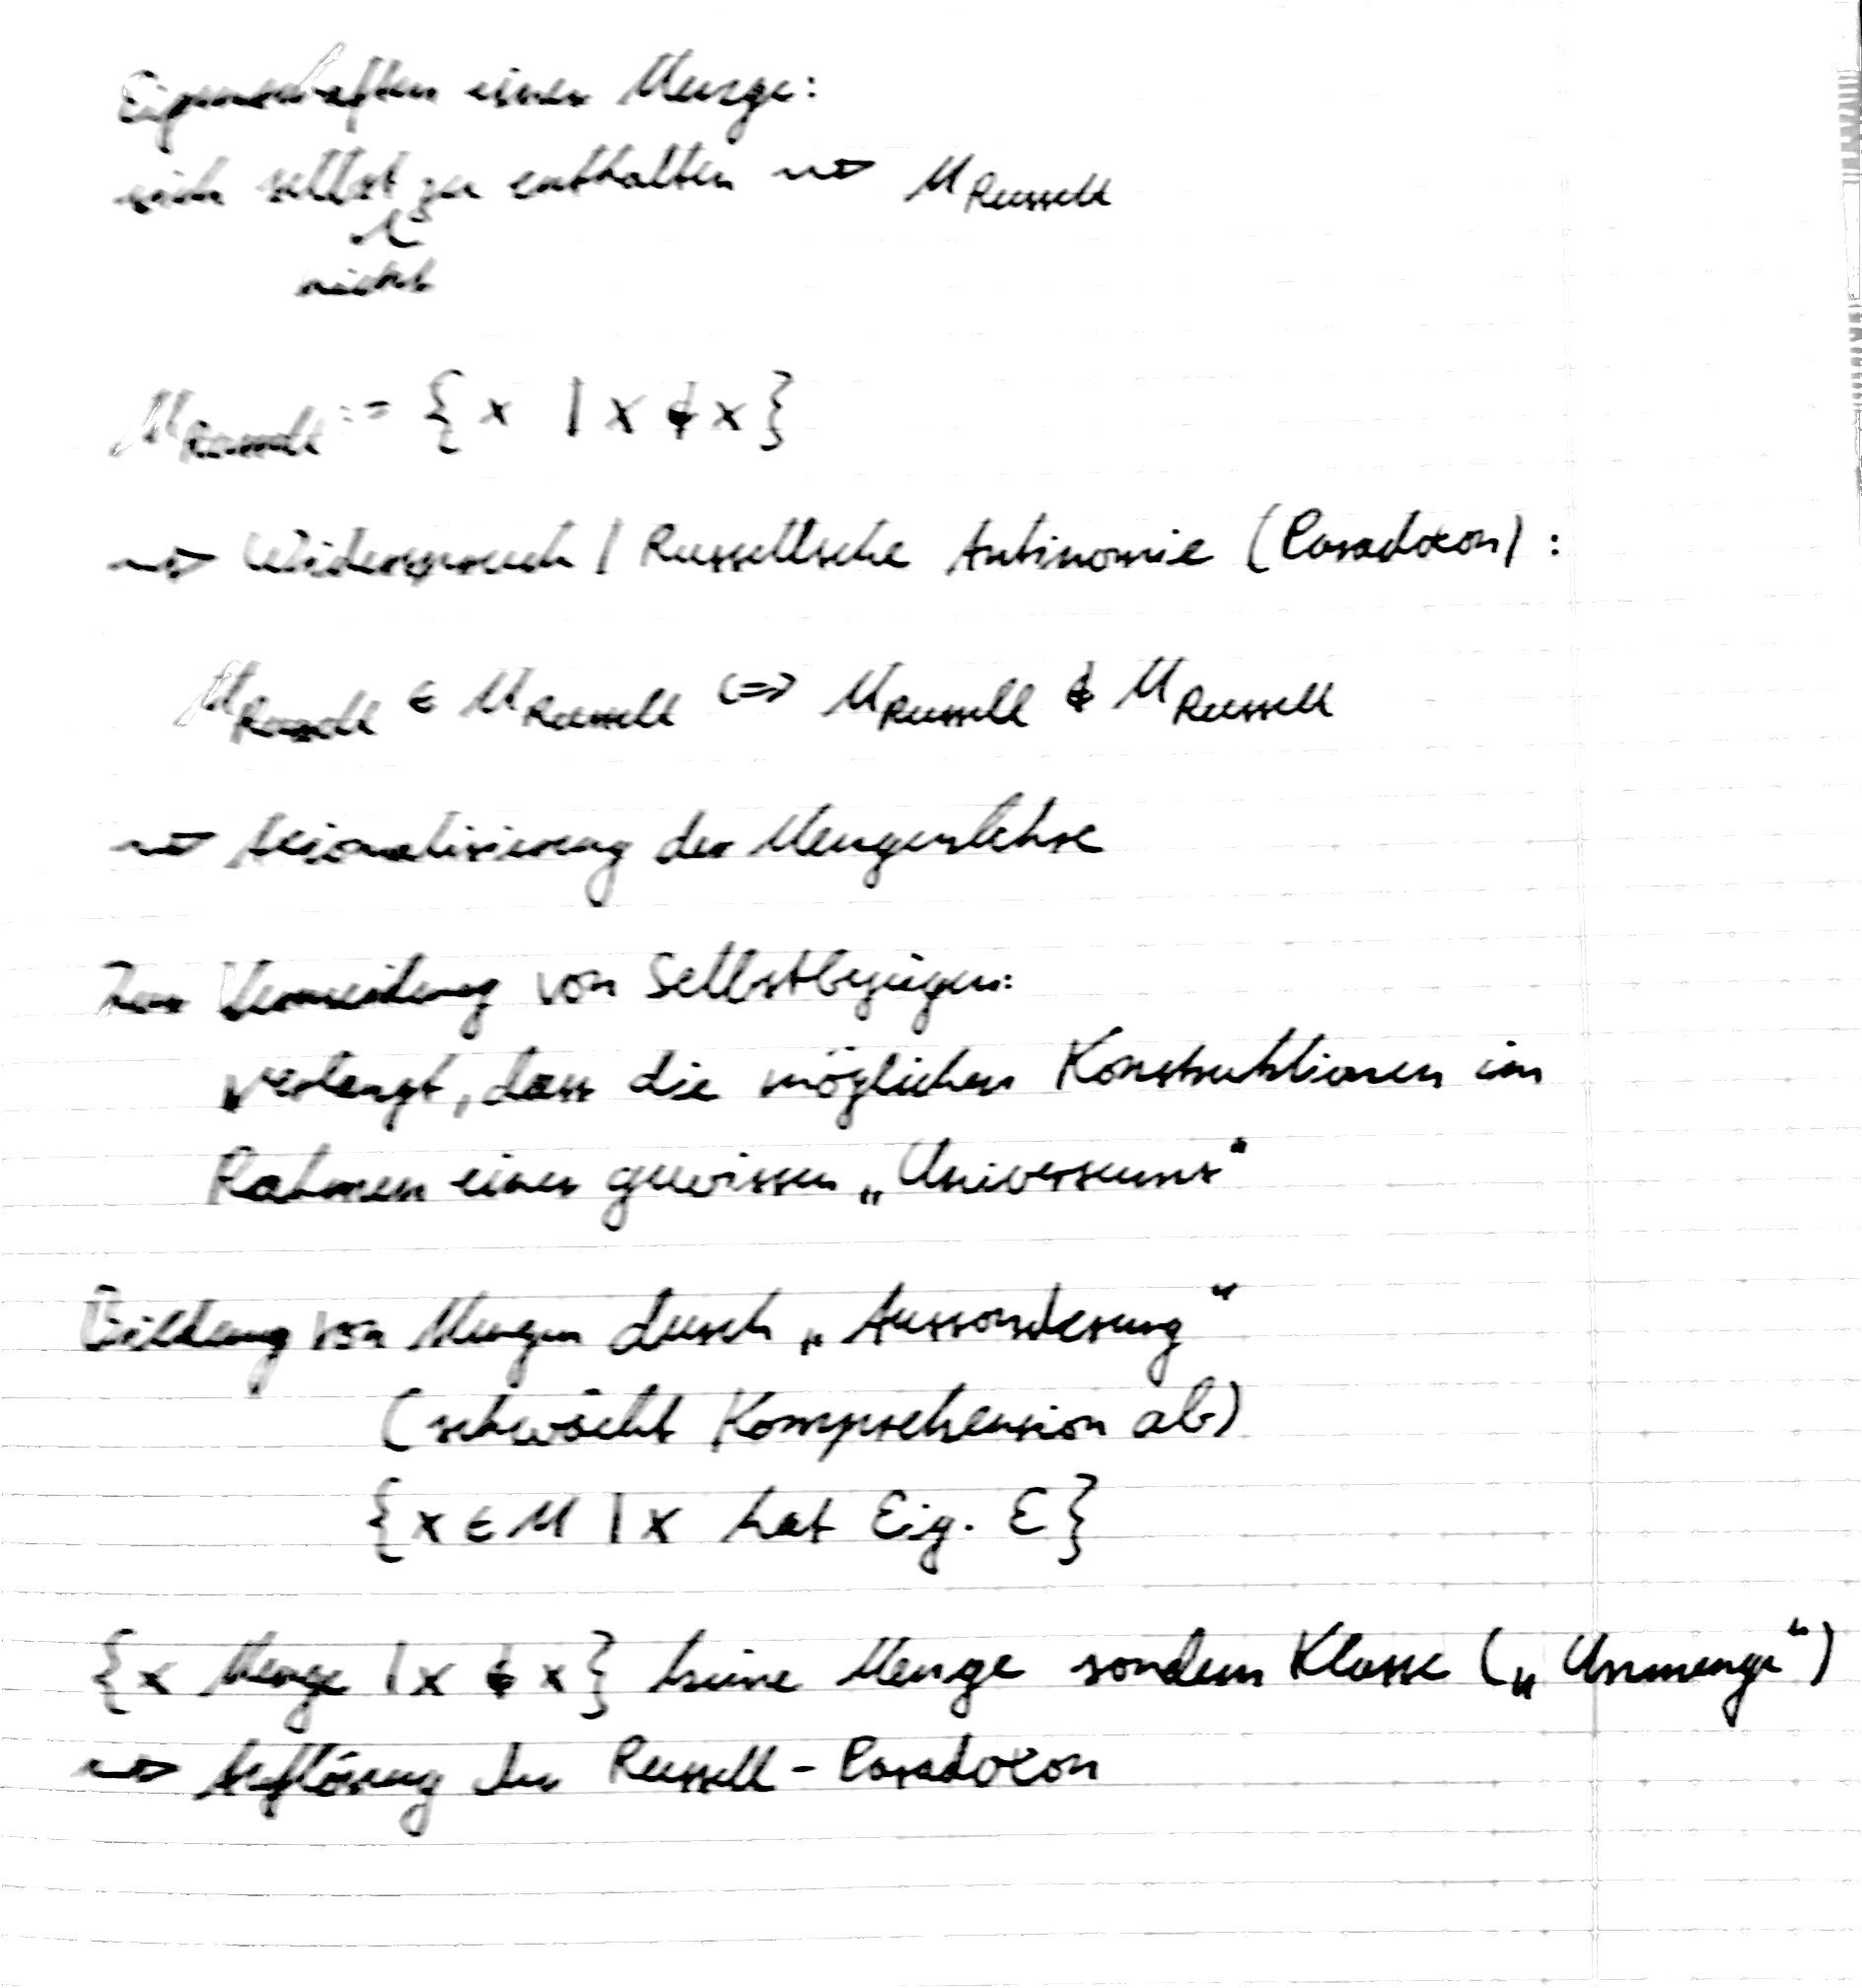 Eigenschaften einer Menge:
sich selbst zu enthalten ⇝ M_Russell
nicht
M_Russell := {x | x ∉ x}
⇝ Widerspruch / Russellsche Antinomie (Paradoxon):
M_Russell ∈ M_Russell ⇔ M_Russell ∉ M_Russell
⇝ Axiomatisierung der Mengenlehre
Zur Vermeidung von Selbstbezügen:
verlangt, dass die möglichen Konstruktionen im
Rahmen eines gewissen „Universums“
Bildung von Mengen durch „Aussonderung“
(schwächt Komprehension ab)
{x ∈ M | x hat Eig. E}
{x Menge | x ∉ x} keine Menge sondern Klasse („Unmenge“)
⇝ Auflösung des Russell-Paradoxon